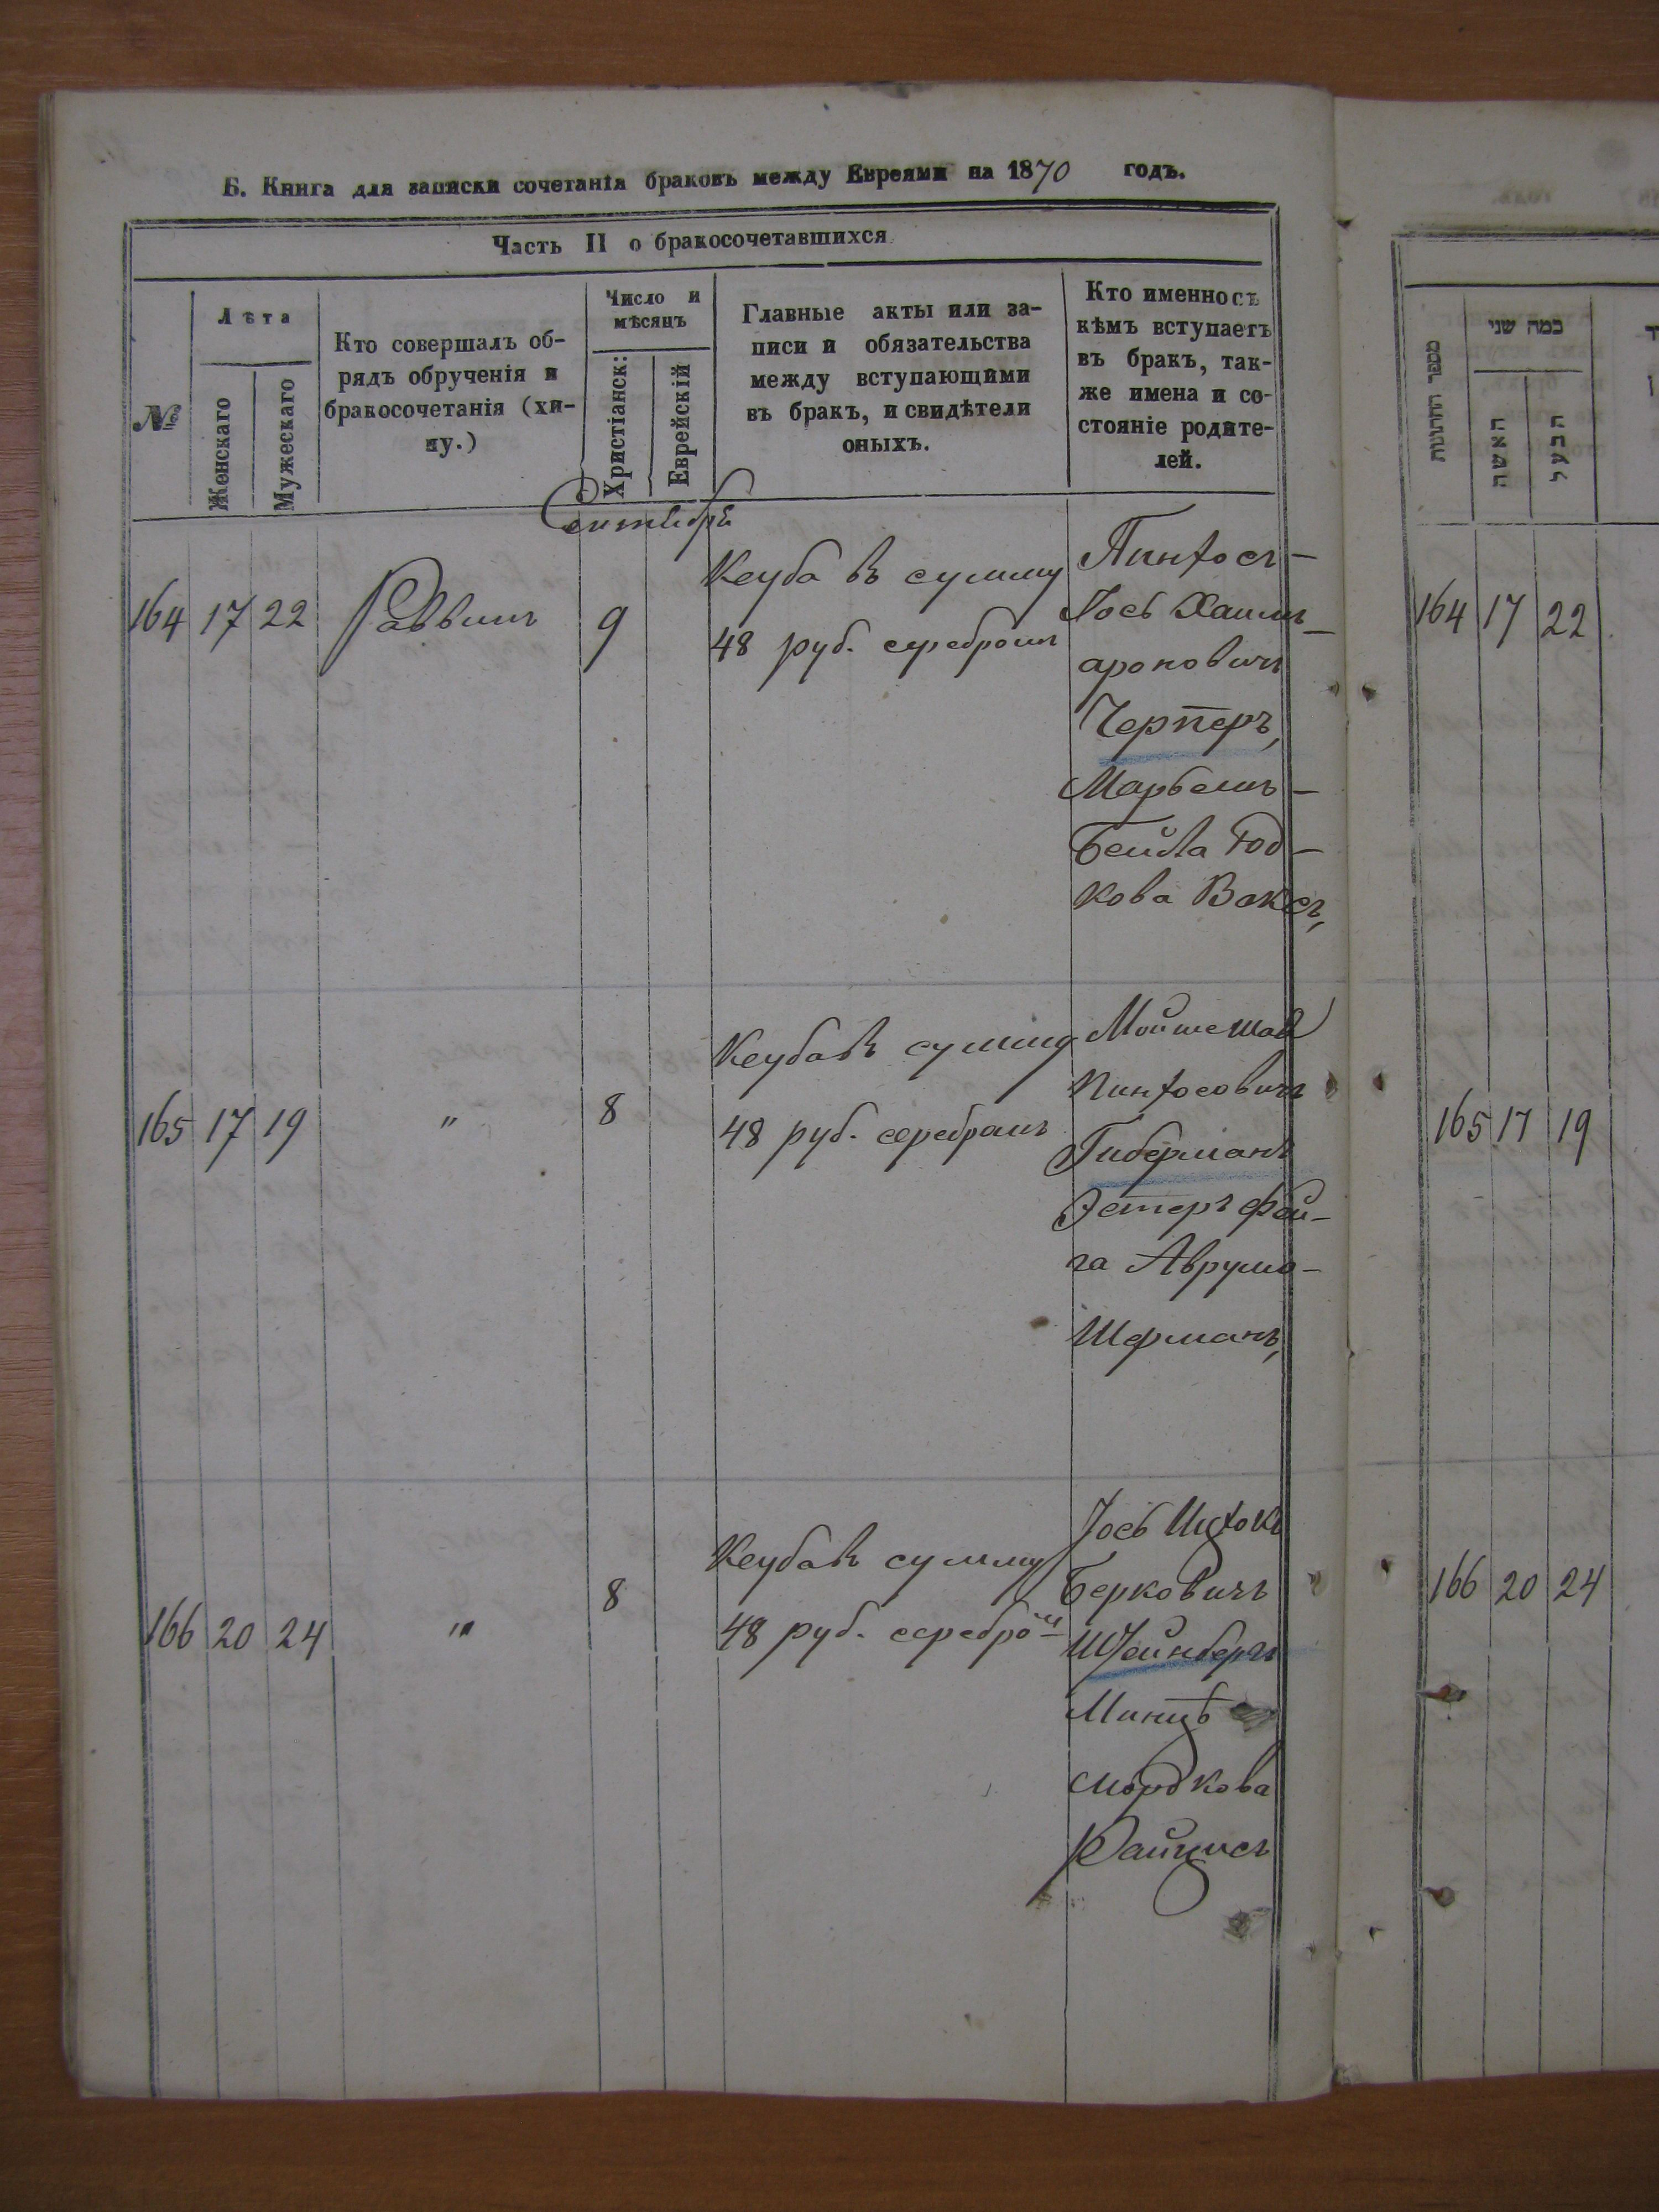 Б. Книга для записки сочетанія браковъ между Евреями на 1870 годъ.
Часть II о бракосочетавшихся
№
Лѣта
Женскаго
Мужескаго
Кто совершалъ об-
рядъ обрученія и
бракосочетанія (хи-
пу.)
Число и
мѣсяцъ
Христіанск:
Еврейскій
Главные акты или за-
писи и обязательства
между вступающими
въ бракъ, и свидѣтели
оныхъ.
Кто именно съ
кѣмъ вступаетъ
въ бракъ, так-
же имена и со-
стояніе родите-
лей.
Сентября
164 17 22 Раввинъ 9
Кеуба въ сумму
48 руб. серебромъ
Пинхосъ-
Іось Хаимъ-
ароновичъ
Черперъ,
Марьемъ-
Бейла Юд-
кова Ваксъ,
165 17 19 " 8
Кеуба въ сумму
48 руб. серебромъ
Мойше
Пинхосовичъ
Гиберманъ
Эстеръ Фей-
га Аврумо-
Шерманъ,
166 20 24 " 8
Кеуба въ сумму
48 руб. серебромъ
Іось Ицхокъ
Берковичъ
Штейнбергъ
Минцѣ
Мордкова
Райцисъ
מספר החתונות
כמה שני
האשה
הבעל
164 17 22
165 17 19
166 20 24